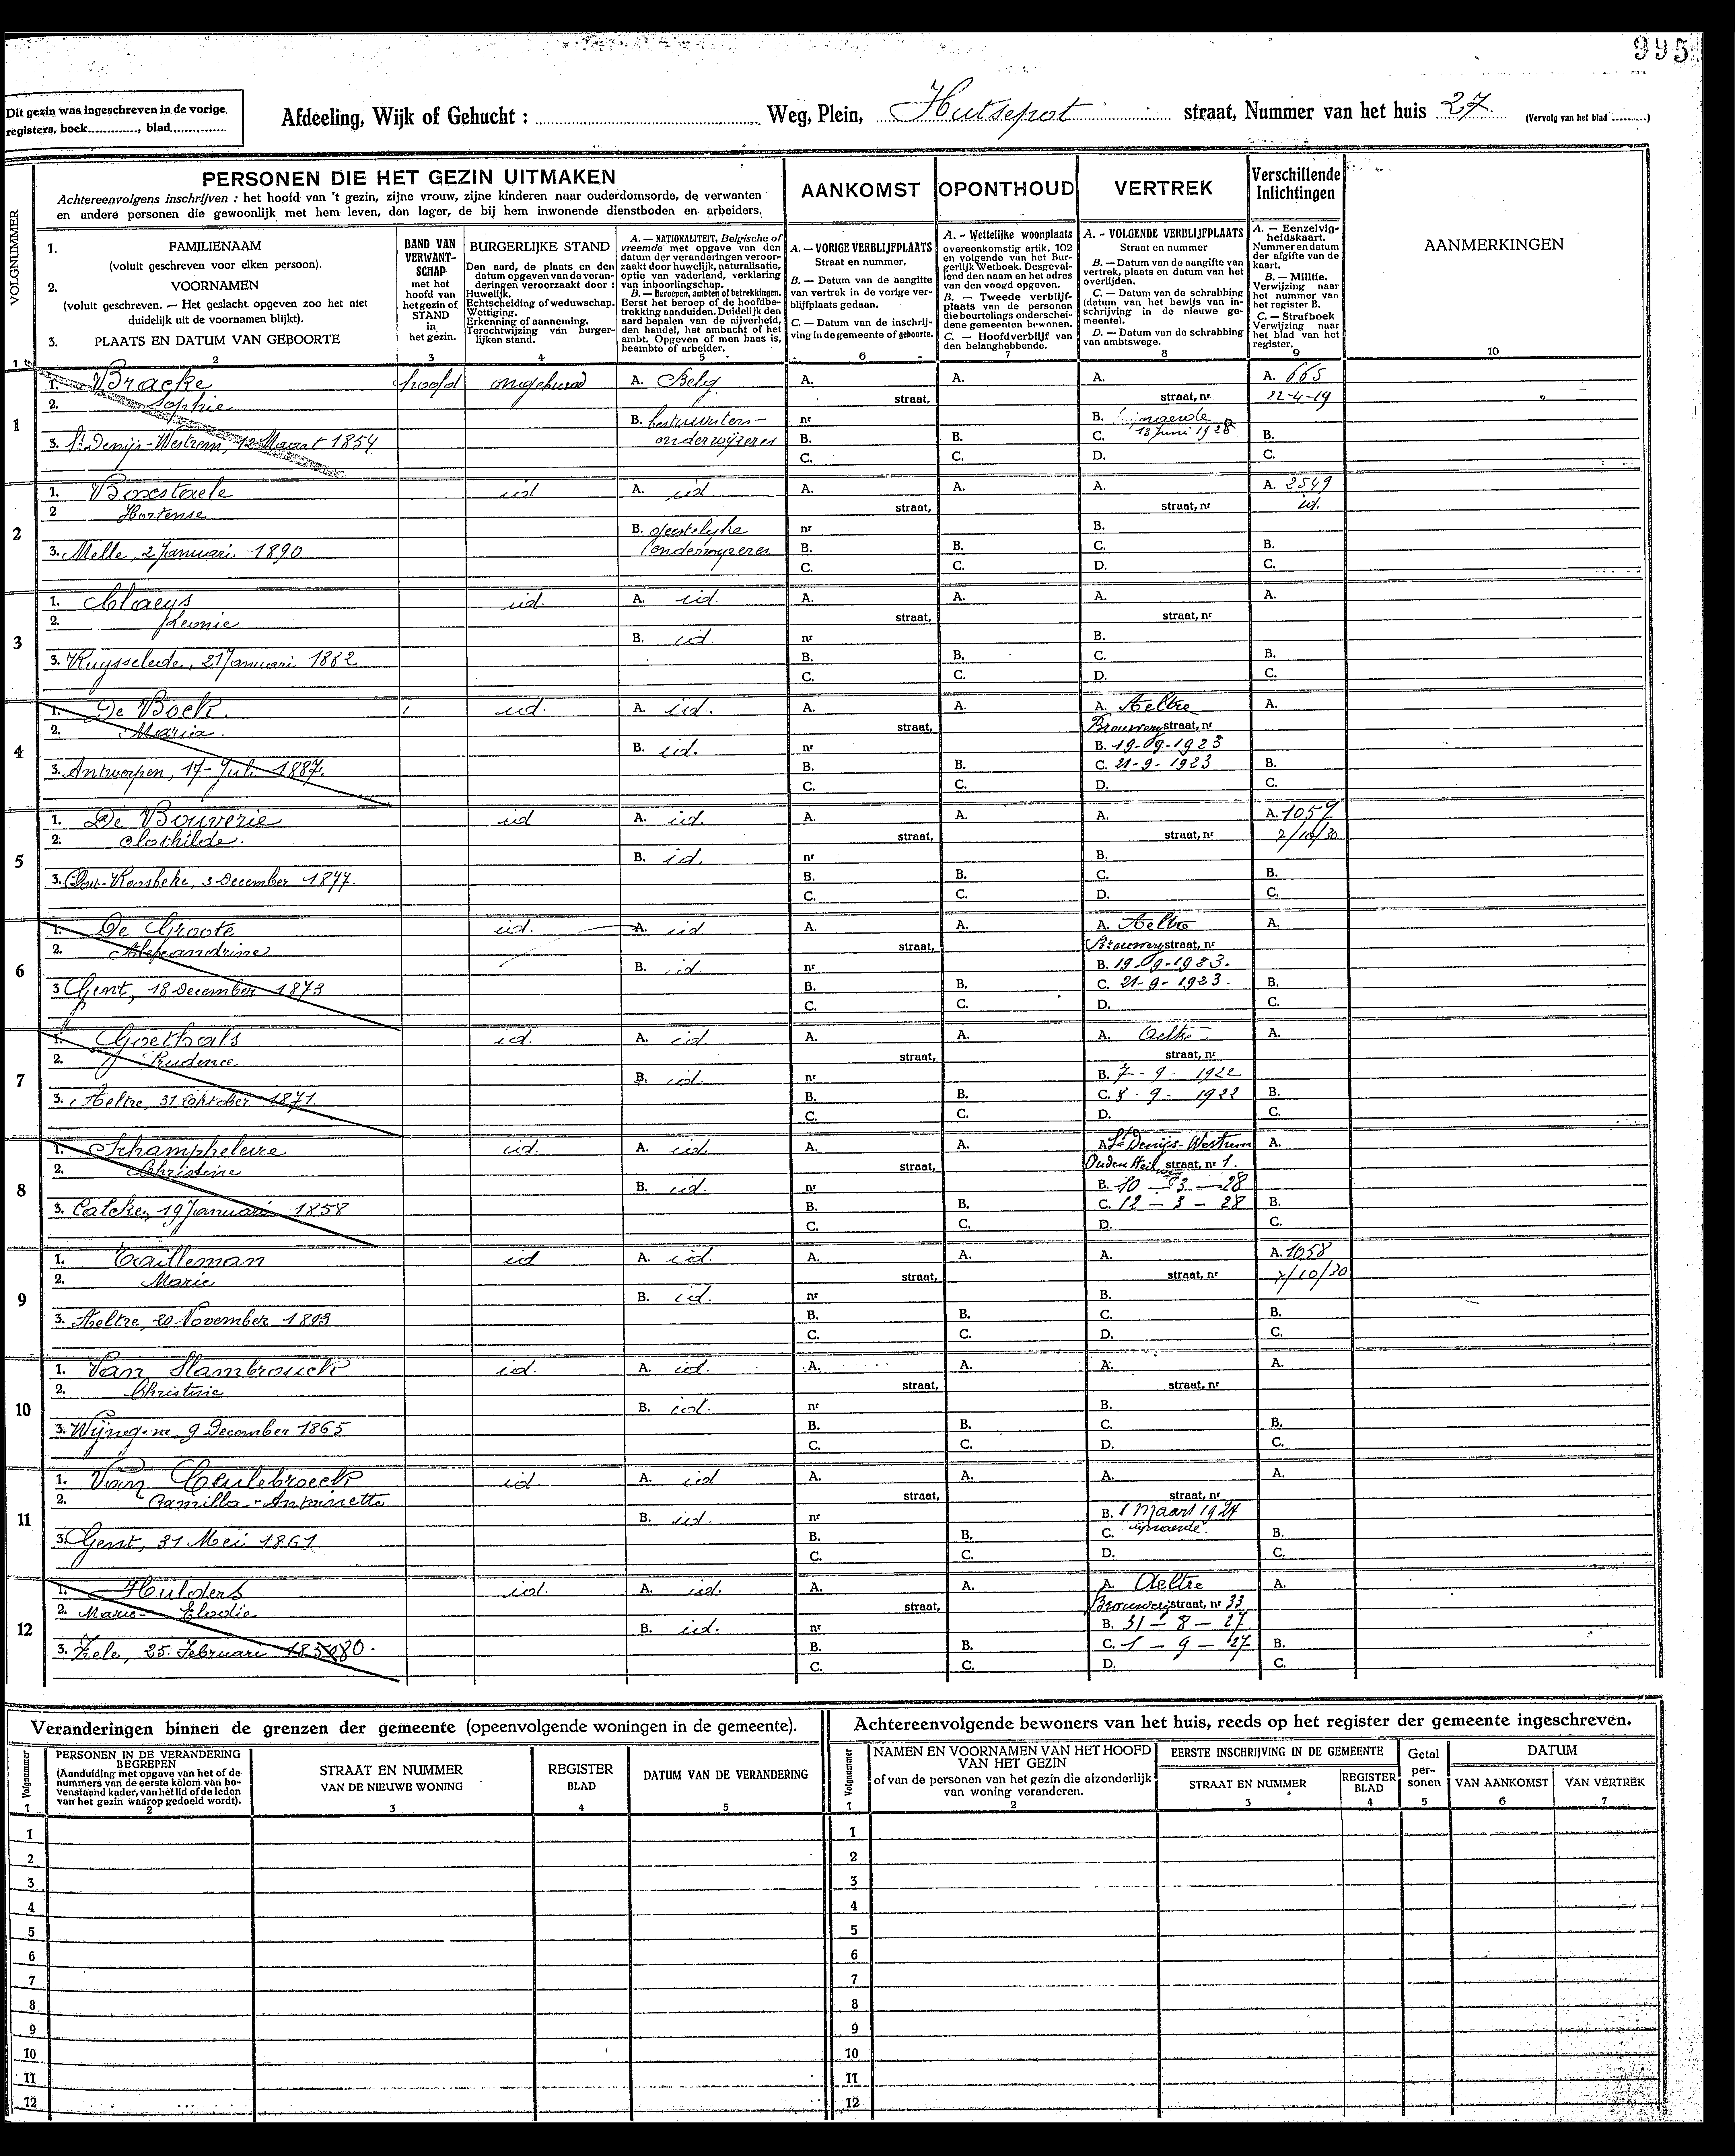 995
Dit gezin was ingeschreven in de vorige
registers, boek............., blad...............
Afdeeling, Wijk of Gehucht : Weg, Plein, Hutsepot straat, Nummer van het huis 27. (Vervolg van het blad ..........)
VOLGNUMMER
PERSONEN DIE HET GEZIN UITMAKEN
Achtereenvolgens inschrijven : het hoofd van 't gezin, zijne vrouw, zijne kinderen naar ouderdomsorde, de verwanten
en andere personen die gewoonlijk met hem leven, dan lager, de bij hem inwonende dienstboden en arbeiders.
1. FAMILIENAAM
(voluit geschreven voor elken persoon).
2. VOORNAMEN
(voluit geschreven. — Het geslacht opgeven zoo het niet
duidelijk uit de voornamen blijkt).
3. PLAATS EN DATUM VAN GEBOORTE
BAND VAN
VERWANT-
SCHAP
met het
hoofd van
het gezin of
STAND
in
het gezin.
BURGERLIJKE STAND
Den aard, de plaats en den
datum opgeven van de veran-
deringen veroorzaakt door :
Huwelijk.
Echtscheiding of weduwschap.
Wettiging.
Erkenning of aanneming.
Terechtwijzing van burger-
lijken stand.
A. — NATIONALITEIT. Belgische of
vreemde met opgave van den
datum der veranderingen veroor-
zaakt door huwelijk, naturalisatie,
optie van vaderland, verklaring
van inboorlingschap.
B. — Beroepen, ambten of betrekkingen.
Eerst het beroep of de hoofdbe-
trekking aanduiden. Duidelijk den
aard bepalen van de nijverheid,
den handel, het ambacht of het
ambt. Opgeven of men baas is,
beambte of arbeider.
AANKOMST
A. — VORIGE VERBLIJFPLAATS
Straat en nummer.
B. — Datum van de aangifte
van vertrek in de vorige ver-
blijfplaats gedaan.
C. — Datum van de inschrij-
ving in de gemeente of geboorte.
OPONTHOUD
A. - Wettelijke woonplaats
overeenkomstig artik. 102
en volgende van het Bur-
gerlijk Wetboek. Desgeval-
lend den naam en het adres
van den voogd opgeven.
B. — Tweede verblijf-
plaats van de personen
die beurtelings onderschei-
dene gemeenten bewonen.
C. — Hoofdverblijf van
den belanghebbende.
VERTREK
A. - VOLGENDE VERBLIJFPLAATS
Straat en nummer
B. — Datum van de aangifte van
vertrek, plaats en datum van het
overlijden.
C. — Datum van de schrabbing
(datum van het bewijs van in-
schrijving in de nieuwe ge-
meente).
D. — Datum van de schrabbing
van ambtswege.
Verschillende
Inlichtingen
A. — Eenzelvig-
heidskaart.
Nummer en datum
der afgifte van de
kaart.
B. — Militie.
Verwijzing naar
het nummer van
het register B.
C. — Strafboek
Verwijzing naar
het blad van het
register.
AANMERKINGEN
1 2 3 4 5 6 7 8 9 10
1
1. Bracke hoofd ongehuwd A. Belg A. A. A. A. 665
2. Sophie straat, straat, nr 22-4-19
B. bestuurster- nr B.
3. St. Denijs-Westrem, 12 Maart 1854 onderwijzeres B. B. C. 13 Juni 1928 B.
C. C. D. C.
2
1. Boxstaele id A. id A. A. A. A. 2549
2 Hortense straat, straat, nr id.
B. geestelijke nr B.
3. Melle, 2 Januari 1890 onderwijzeres B. B. C. B.
C. C. D. C.
3
1. Claeys id. A. id. A. A. A. A.
2. Leonie straat, straat, nr
B. id. nr B.
3. Ruysselede, 21 Januari 1882 B. B. C. B.
C. C. D. C.
4
1. De Bock. id. A. id. A. A. A. Aeltre A.
2. Maria. straat, Brouwerijstraat, nr
B. id. nr B. 19-09-1923
3. Antwerpen, 17 - Juli 1887. B. B. C. 21-9-1923 B.
C. C. D. C.
5
1. De Bouverie id A. id. A. A. A. A. 1057
2. Clothilde. straat, straat, nr 2/10/30
B. id. nr B.
3. Oost-Roosbeke, 3 December 1877. B. B. C. B.
C. C. D. C.
6
1. De Groote id. A. id A. A. A. Aeltre A.
2. Alexandrine straat, Brouwerijstraat, nr
B. id. nr B. 19-09-1923.
3 Gent, 18 December 1873 B. B. C. 21-9-1923. B.
C. C. D. C.
7
1. Goethals id. A. id A. A. A. Aeltre A.
2. Prudence straat, straat, nr
B. id. nr B. 7 - 9 - 1922
3. Aeltre, 31 Oktober 1871. B. B. C. 8 - 9 - 1922 B.
C. C. D. C.
8
1. Schampheleire id. A. id A. A. A. St Denijs-Westrem A.
2. Christine straat, Ouden Heirweg straat, nr 1.
B. id. nr B. 10 - 3 - 28
3. Calcken, 19 Januari 1858 B. B. C. 12 - 3 - 28 B.
C. C. D. C.
9
1. Tailleman id A. id. A. A. A. A. 1058
2. Marie straat, straat, nr 2/10/30
B. id. nr B.
3. Aeltre, 20 November 1893 B. B. C. B.
C. C. D. C.
10
1. Van Hambrouck id. A. id. A. A. A. A.
2. Christine straat, straat, nr
B. id. nr B.
3. Wijnegene, 9 December 1865 B. B. C. B.
C. C. D. C.
11
1. Van Ceulebroeck id. A. id A. A. A. A.
2. Camilla-Antoinette straat, straat, nr
B. id. nr B. 1 Maart 1924
3. Gent, 31 Mei 1861 B. B. C. B.
C. C. D. C.
12
1. Hulders id. A. id. A. A. A. Aeltre A.
2. Marie- Elodie straat, Brouwerijstraat, nr 33
B. id. nr B. 31 - 8 - 27.
3. Zele, 25 Februari 1880. B. B. C. 1 - 9 - 27 B.
C. C. D. C.
Veranderingen binnen de grenzen der gemeente (opeenvolgende woningen in de gemeente).
Volgnummer
PERSONEN IN DE VERANDERING
BEGREPEN
(Aanduiding met opgave van het of de
nummers van de eerste kolom van bo-
venstaand kader, van het lid of de leden
van het gezin waarop gedoeld wordt).
STRAAT EN NUMMER
VAN DE NIEUWE WONING
REGISTER
BLAD
DATUM VAN DE VERANDERING
1 2 3 4 5
1
2
3
4
5
6
7
8
9
10
11
12
Achtereenvolgende bewoners van het huis, reeds op het register der gemeente ingeschreven.
Volgnummer
NAMEN EN VOORNAMEN VAN HET HOOFD
VAN HET GEZIN
of van de personen van het gezin die afzonderlijk
van woning veranderen.
EERSTE INSCHRIJVING IN DE GEMEENTE
STRAAT EN NUMMER
REGISTER
BLAD
Getal
per-
sonen
DATUM
VAN AANKOMST
VAN VERTREK
1 2 3 4 5 6 7
1
2
3
4
5
6
7
8
9
10
11
12